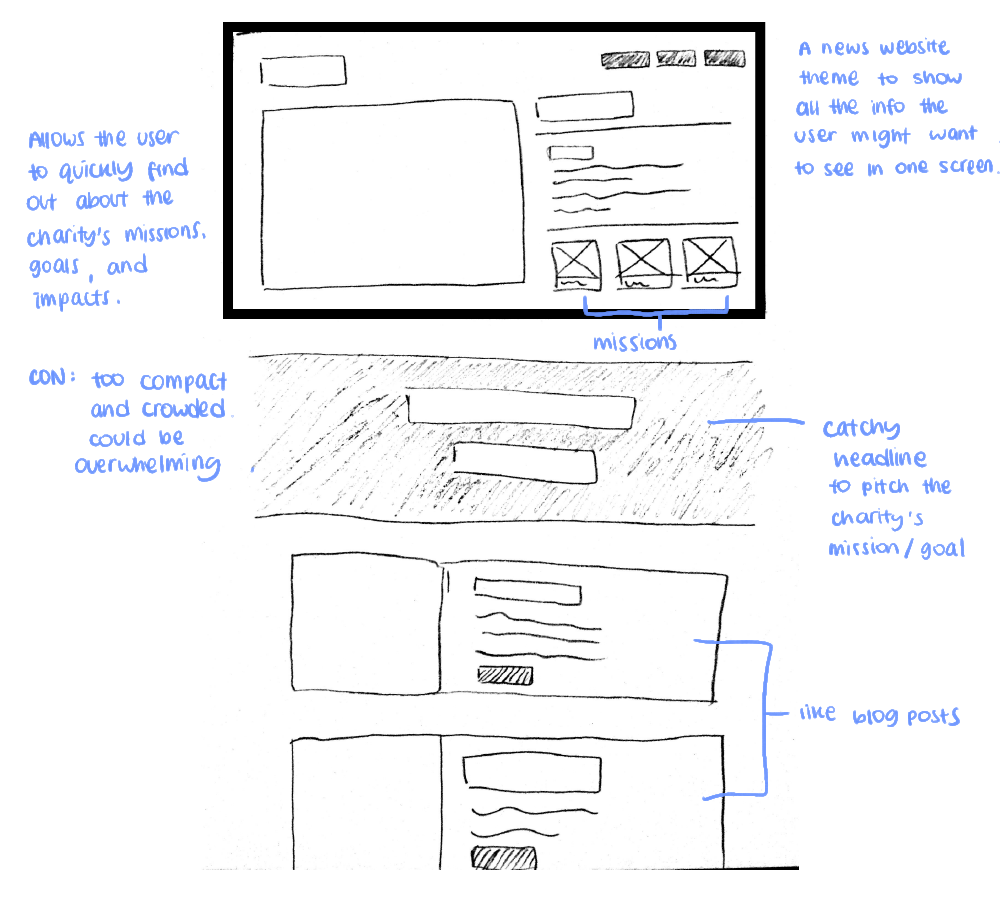 Allows the user
to quickly find
out about the
charity's missions,
goals, and
impacts.
A news website
theme to show
all the info the
user might want
to see in one screen.
missions
CON: too compact
and crowded.
could be
overwhelming
catchy
headline
to pitch the
charity's
mission/goal
like blog posts